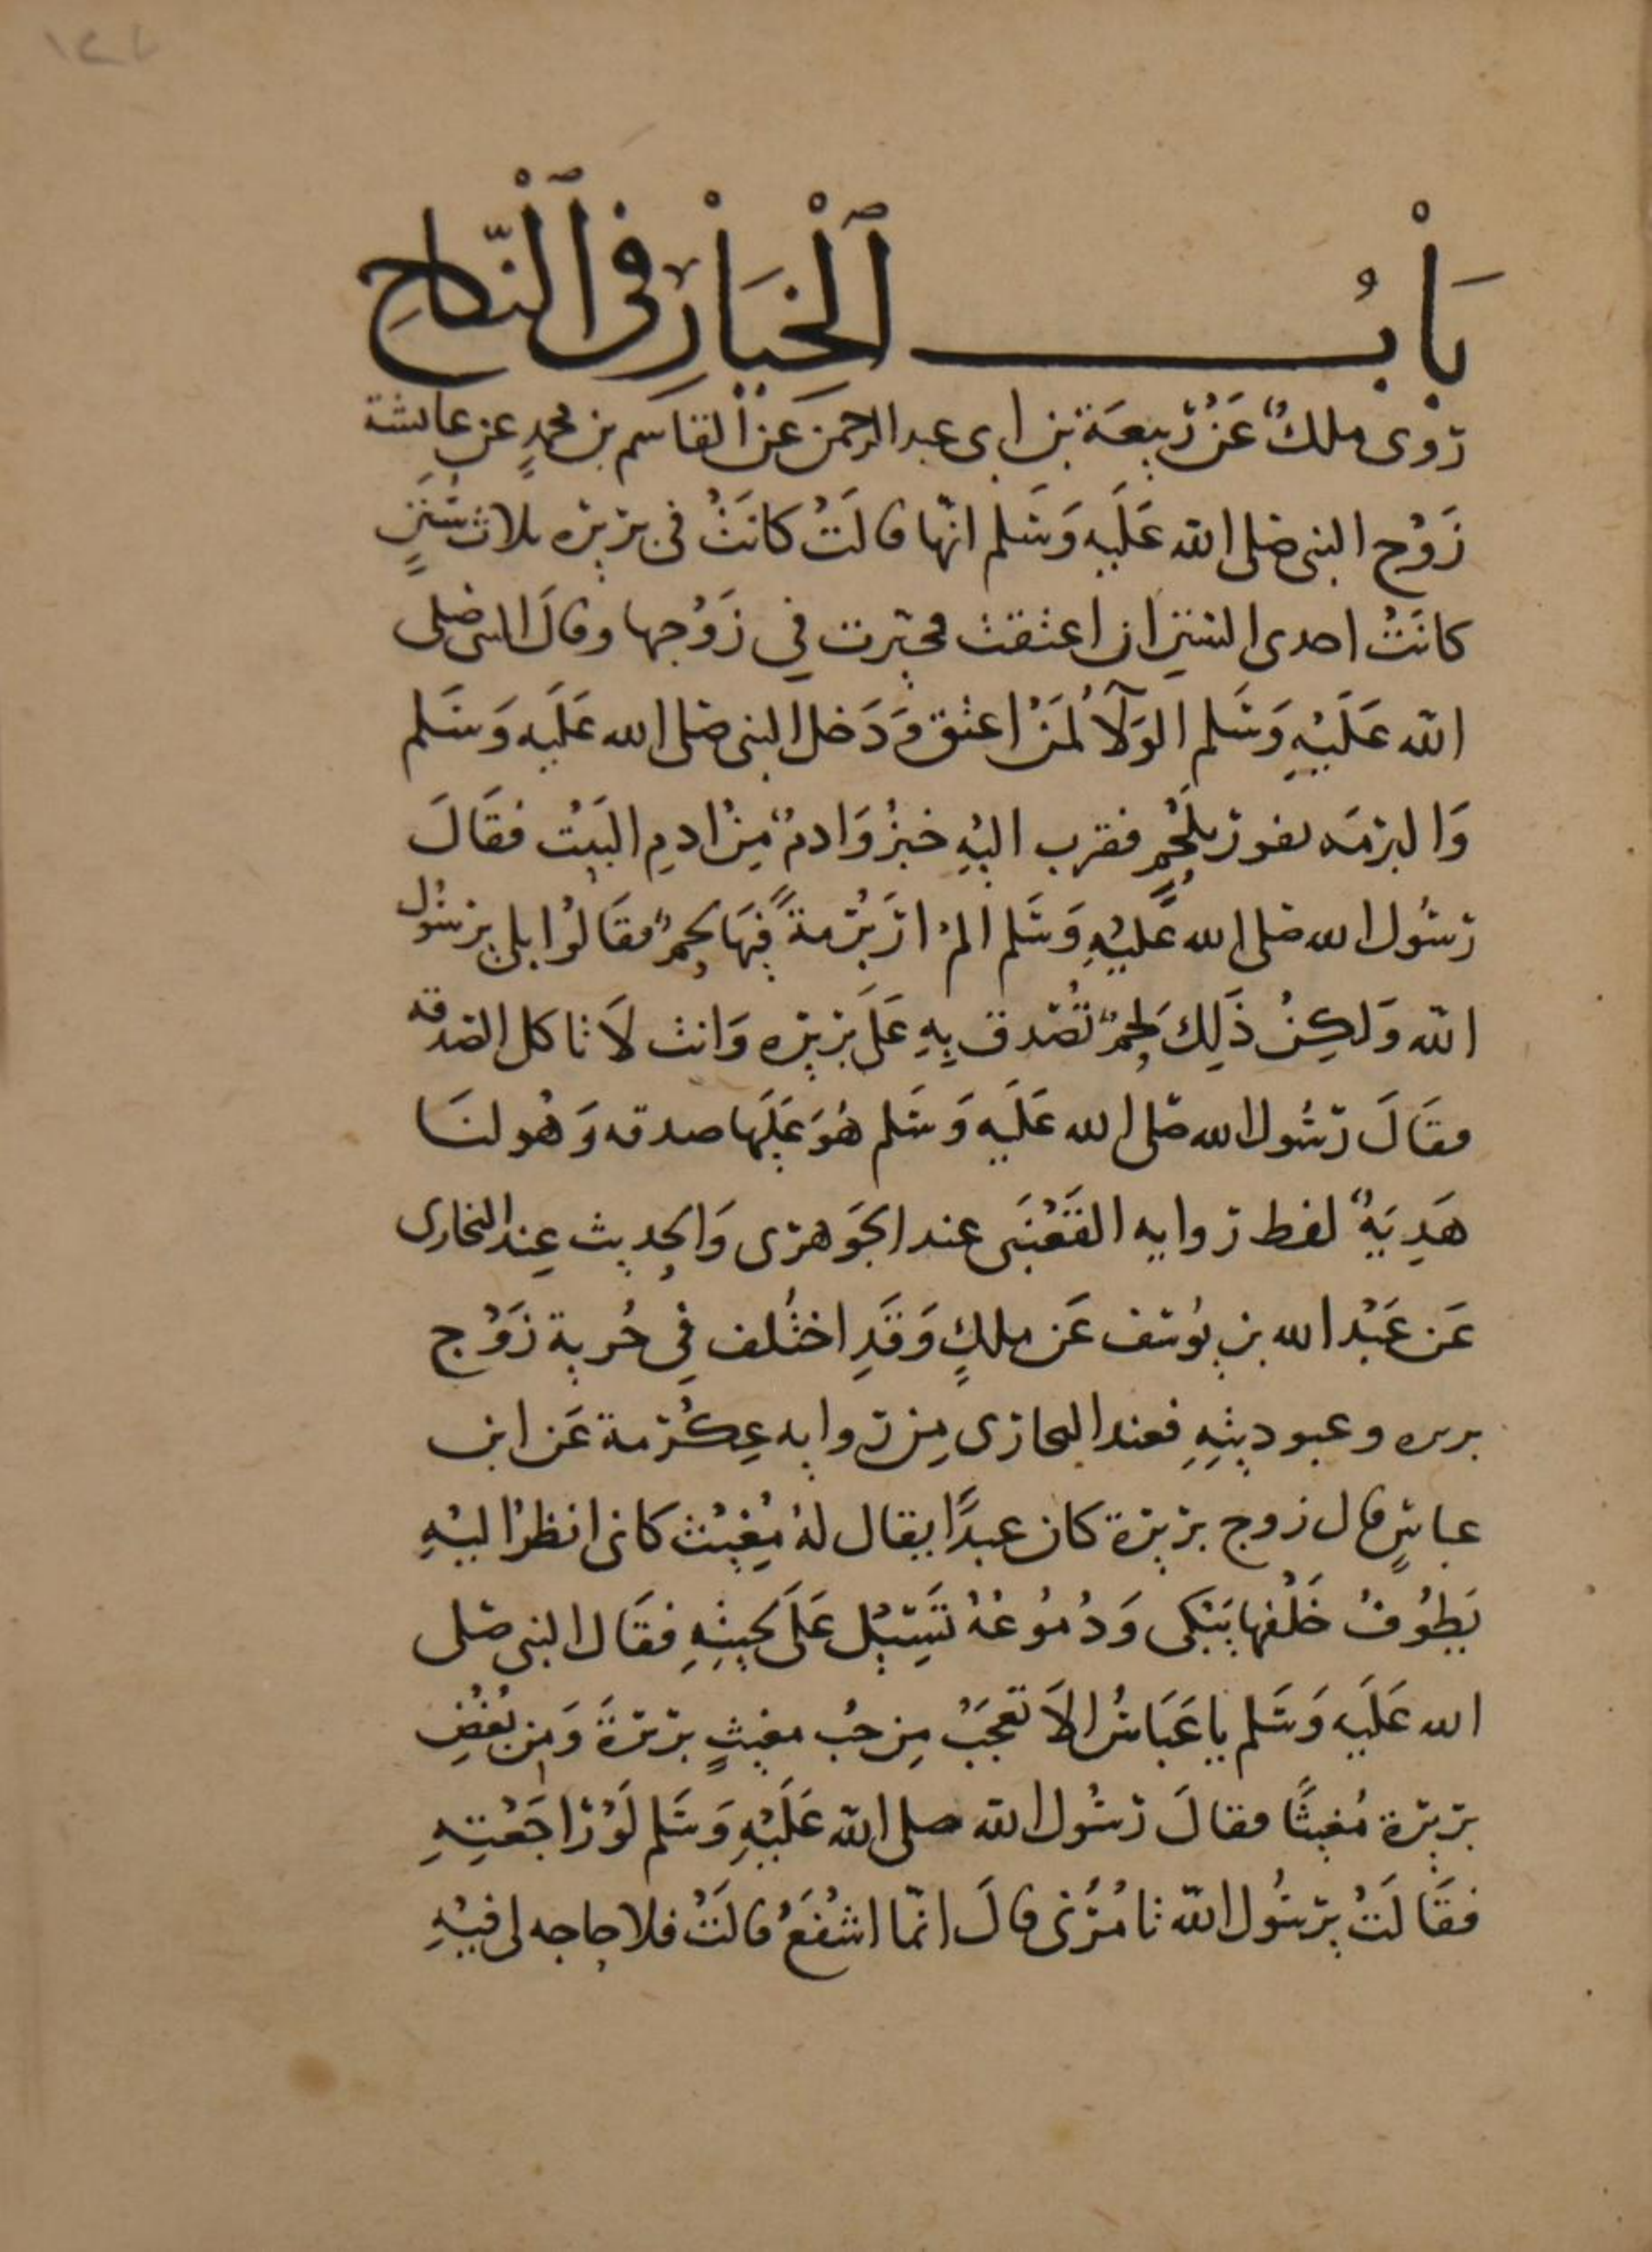 بَابُ الْخِيَارِ فِي النِّكَاحِ
روى ملكٌ عَنْ رَبِيعَة بن ابى عبد الرحمن عن القاسم بن محمدٍ عن عايشة
زَوْج النبى صلى الله عَلَيهِ وَسَلم انّها قالَتْ كانَتْ فى بريره ثلاث سُنَنٍ
كانَتْ احدى السنن ان اعتقت فخيّرت فِي زَوْجها وقالَ النبى صلى
الله عَلَيْهِ وَسَلم الوَلَآ لمَنْ اعتق وَدَخل النبى صلى الله عَلَيه وَسَلم
وَالبرمَه تفور بلَحْمٍ فقرب اليْهِ خبزٌ وَادمٌ مِنْ ادمِ البَيْت فقَالَ
رسُول الله صلى الله عَليْهِ وَسَلم المْ ارَ بُرمةً فِيهَا لحمٌ فقَالُوا بلى يرسُول
الله وَلكِنْ ذَلِكَ لَحِمٌ تُصّدق بِهِ عَلَى بريره وَانت لَا تاكل الصدقه
فقَالَ رّسُول الله صَلى الله عَلَيه وَسَلم هُوَ عَلَيها صدقه وَهُو لنَا
هَدِيَةٌ لفظ روايه القَعْنَبَى عند الجَوهرى وَالحِديث عِند البخارى
عَن عَبْد الله بن يُوسف عَن ملكٍ وَقَدِ اختُلف فِي حُرية زَوْج
بريره وعبوديتِهِ فعند البخارى مِن روايه عِكْرمة عَن ابن
عباسٍ قال زوج بريرة كان عبدًا يقال لهُ مُغِيْث كانى انظرُ اليْهِ
يَطُوفُ خَلْفها يَبْكى وَدُمُوعُهُ تَسِيْل عَلَى لحيتِهِ فقَال النبى صَلى
الله عَلَيه وَسَلم يا عَبَاسُ الاَ تعجَبْ مِن حُب مغيثٍ بريرةَ وَمِن بُغْضِ
بريرة مُغيثًا فقالَ رسُول الله صلى الله عَلَيْهِ وَسَلم لَوْ رَاجَعْتِهِ
فقَالَتْ يرسُول الله تامُرُنى قالَ انّما اشْفَعُ قالَتْ فلا حاجه لى فيْهِ